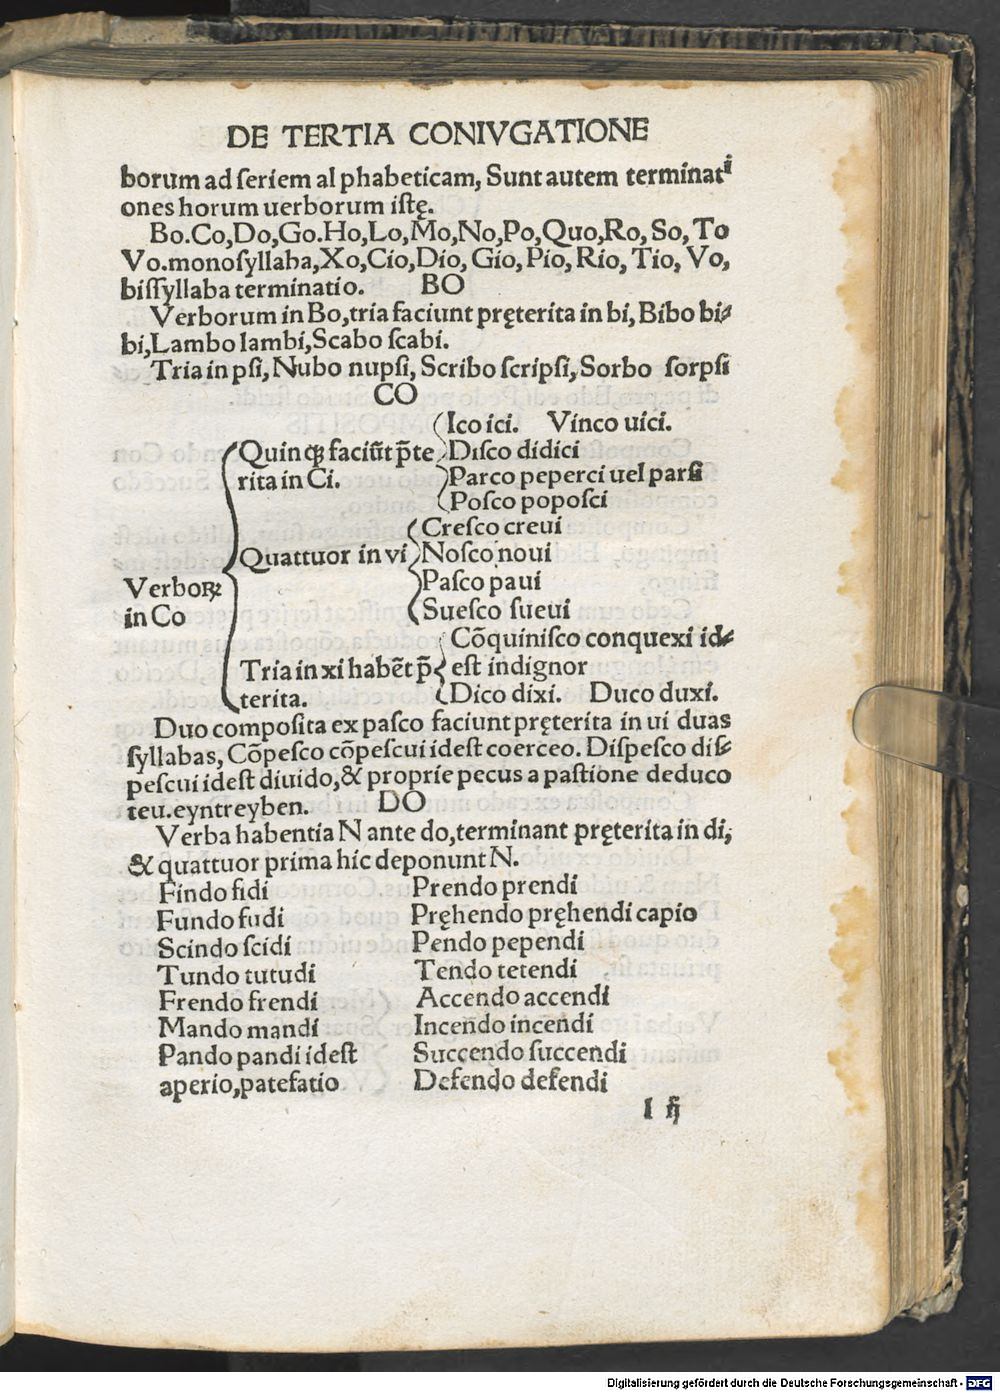 DE TERTIA CONIVGATIONE
borum ad ſeriem alphabeticam, Sunt autem terminati
ones horum uerborum iſtę.
Bo.Co,Do,Go.Ho,Lo,Mo,No,Po,Quo,Ro, So, To
Vo.monoſyllaba,Xo,Cio,Dio, Gio, Pio, Rio, Tio, Vo,
biſſyllaba terminatio. BO
Verborum in Bo,tria faciunt pręterita in bi, Bibo bi⸗
bi,Lambo lambi,Scabo ſcabi.
Tria in pſi, Nubo nupſi, Scribo ſcripſi, Sorbo ſorpſi
CO
Verboꝝ
in Co
Quinqꝫ faciũt p̃te
rita in Ci.
Ico ici. Vinco uici.
Diſco didici
Parco peperci uel parſi
Poſco popoſci
Quattuor in vi
Creſco creui
Noſco noui
Paſco paui
Sueſco ſueui
Tria in xi habẽt p̃
terita.
Cõquiniſco conquexi id⸗
eſt indignor
Dico dixi. Duco duxi.
Duo compoſita ex paſco faciunt pręterita in ui duas
ſyllabas, Cõpeſco cõpeſcui ideſt coerceo. Diſpeſco diſ⸗
peſcui ideſt diuido,& proprie pecus a paſtione deduco
teu.eyntreyben. DO
Verba habentia N ante do,terminant pręterita in di,
& quattuor prima hic deponunt N.
Findo fidi
Fundo fudi
Scindo ſcidi
Tundo tutudi
Frendo frendi
Mando mandi
Pando pandi ideſt
aperio,patefatio
Prendo prendi
Pręhendo pręhendi capio
Pendo pependi
Tendo tetendi
Accendo accendi
Incendo incendi
Succendo ſuccendi
Defendo defendi
Digitalisierung gefördert durch die Deutsche Forschungsgemeinschaft - DFG